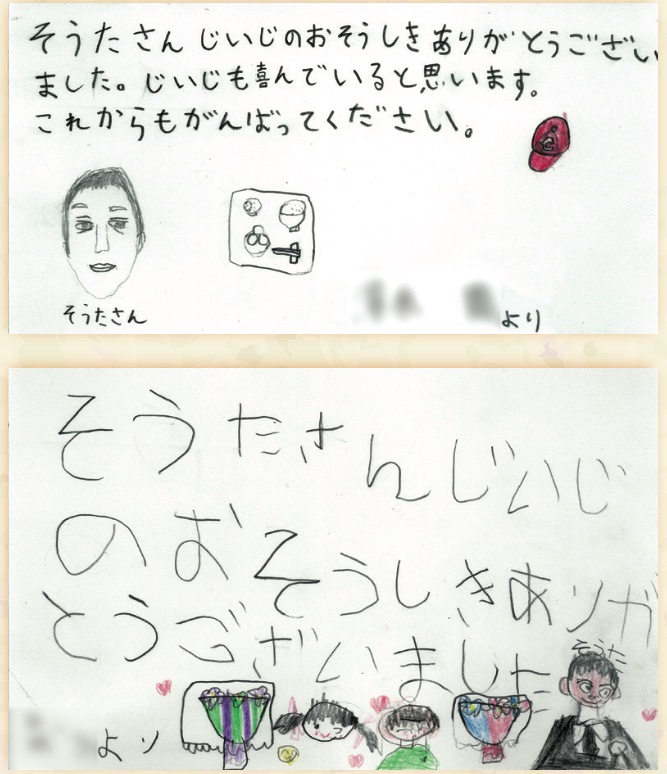 そうたさん じいじのおそうしきありがとうござい
ました。じいじも喜んでいると思います。
これからもがんばってください。
そうたさん
より
そうたさんじいじ
のおそうしきありが
とうございました
そうた
より